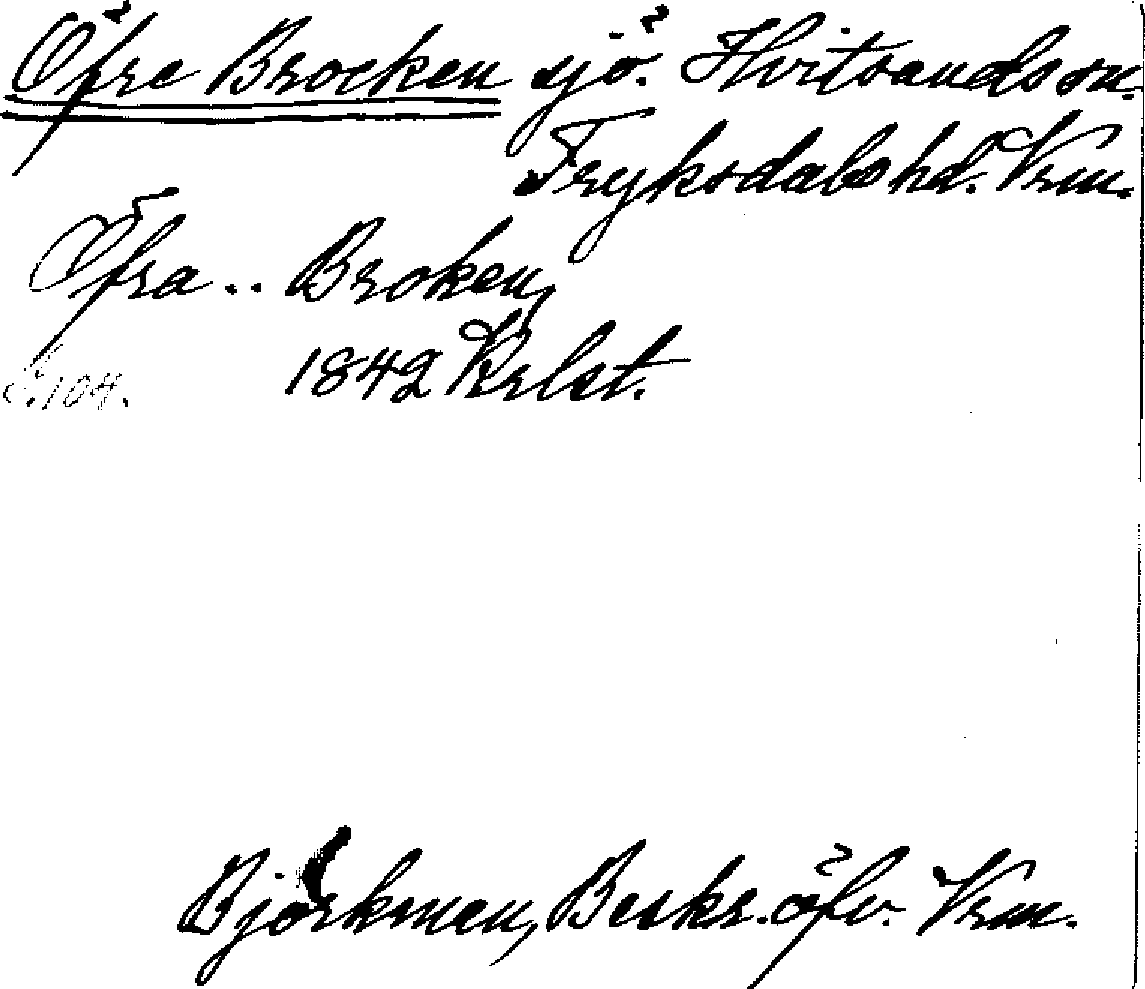 Öfre Brocken sjö. Hvitsands sn.
Fryksdals hd. Vrm.
Öfra .. Broken,
1842 Krlst.
S. 104.
Björkman, Beskr. öfv. Vrm.